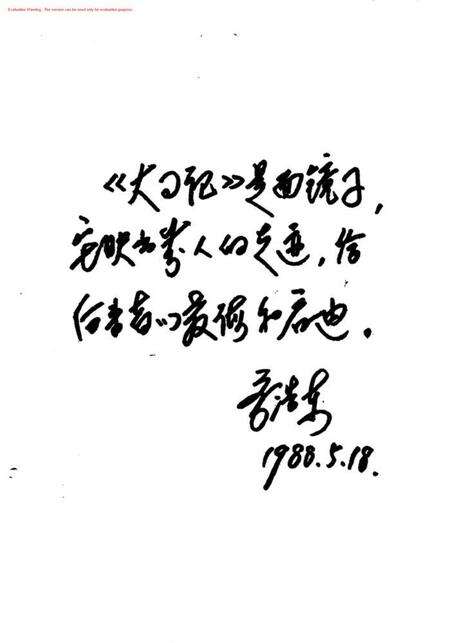 Evaluation Warning : The version can be used only for evaluation purpose.
《大事记》是面镜子，
它映出人的足迹，给
后来者们教诲和启迪。
浩东
1988.5.18.